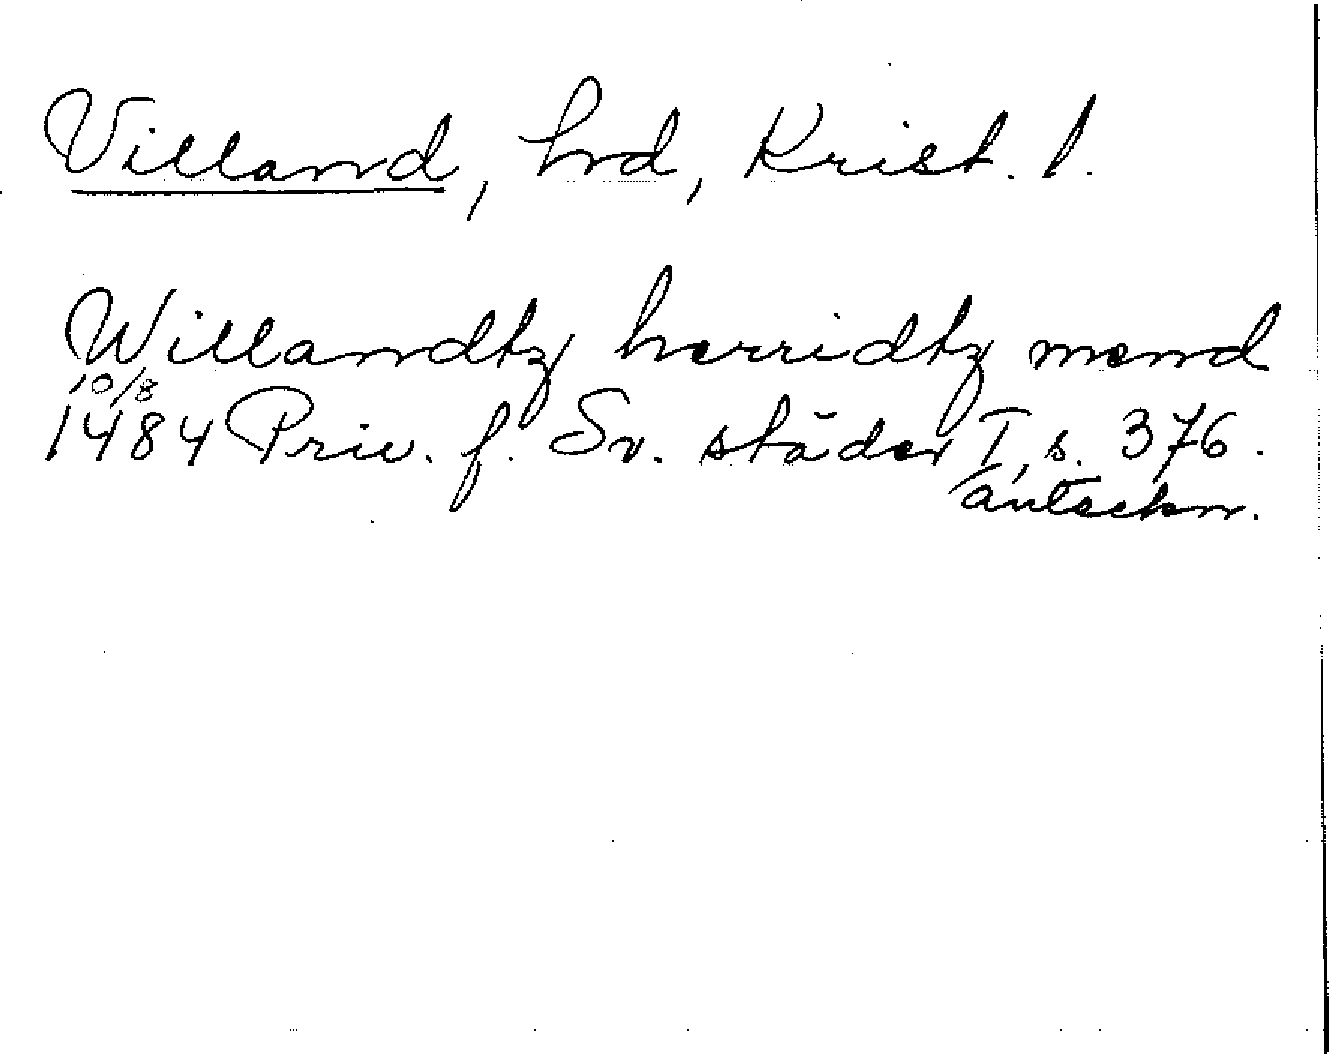 Villand, hrd, Krist. l.
Willandtz herridtz mend
10/8
1484 Priv. f. Sv. städer I, s. 376.
avteckn.